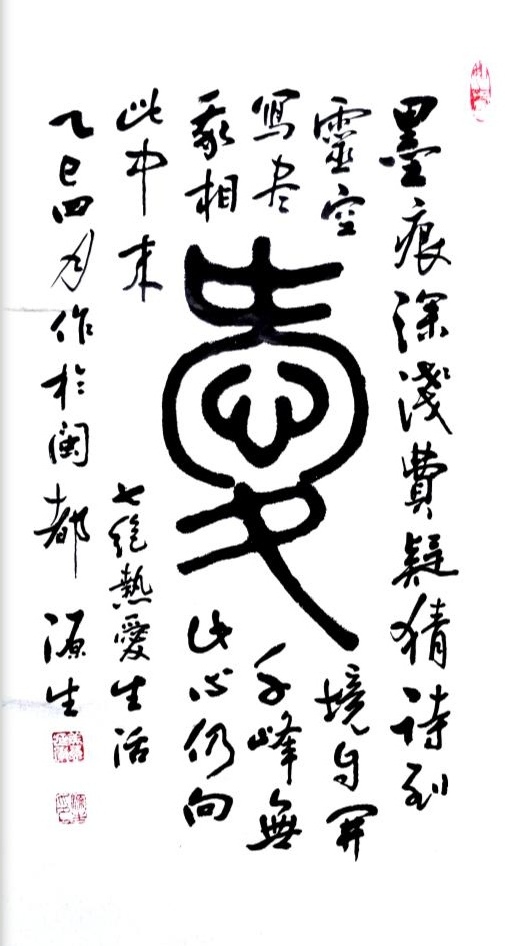 墨痕深淺費疑猜诗到
靈空境自開
寫尽千峰無
我相此心仍向
此中来
愛
七绝熱愛生活
乙巳四月作於闽都源生